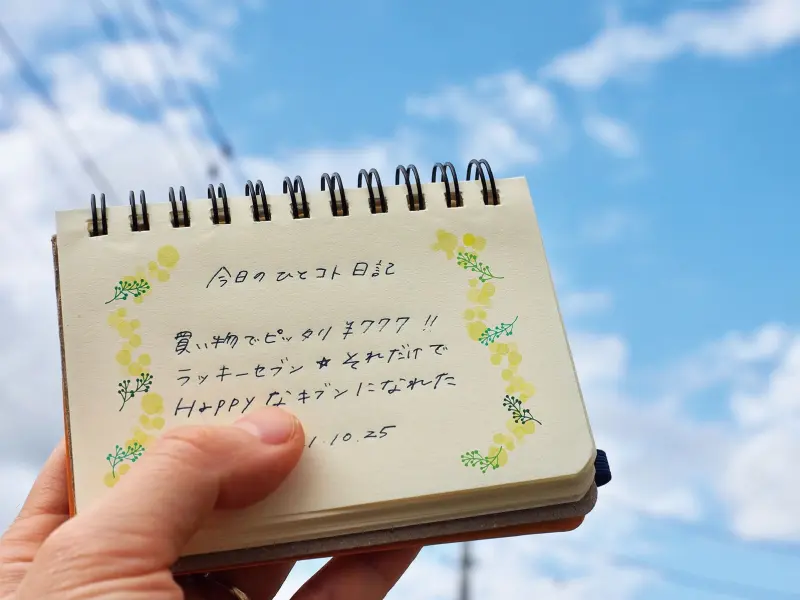 今日のひとコト日記
買い物でピッタリ ¥777 !!
ラッキーセブン★それだけで
Happyなキブンになれた
1.10.25